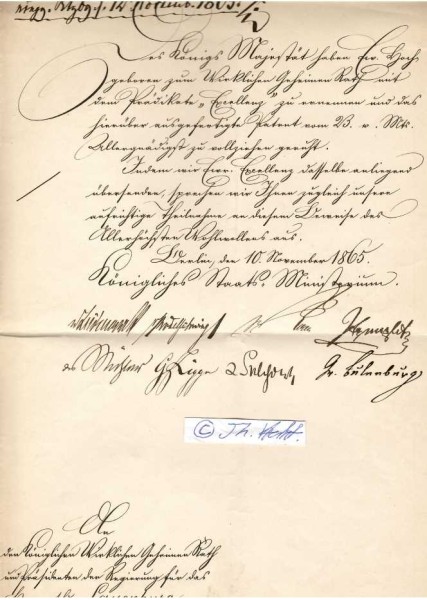 Des Königs Majestät haben Ew. Hoch-
geboren zum Wirklichen Geheimen Rath mit
dem Prädikate „Excellenz" zu ernennen und das
hierüber ausgefertigte Patent vom 23. v. Mts.
Allergnädigst zu vollziehen geruht.
Indem wir Ewr. Excellenz dasselbe anliegend
übersenden, sprechen wir Ihnen zugleich unsere
aufrichtige Theilnahme an diesem Beweise des
Allerhöchsten Wohlwollens aus.
Berlin, den 10. November 1865.
Königliches Staats-Ministerium.
vBismarck vBodelschwingh v Roon Itzenplitz
v Mühler Gr Lippe v Selchow, Gr. Eulenburg
© Th. Hecht.
An
den Königlichen Wirklichen Geheimen Rath
und Präsidenten der Regierung für das